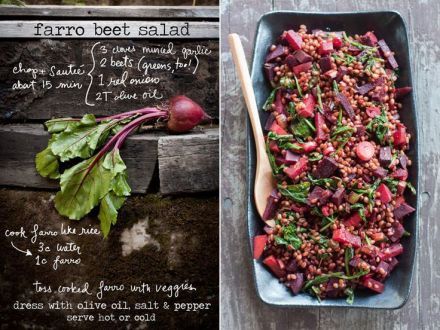 farro beet salad
chop + sautée
about 15 min
3 cloves minced garlic
2 beets (greens, too!)
1 red onion
2T olive oil
cook farro like rice
3c water
1c farro
toss cooked farro with veggies
dress with olive oil, salt & pepper
serve hot or cold